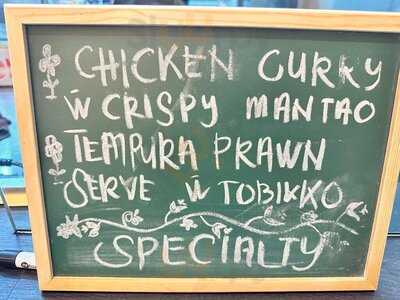 CHICKEN CURRY
W̄ CRISPY MANTAO
TEMPURA PRAWN
SERVE W̄ TOBIKKO
SPECIALTY